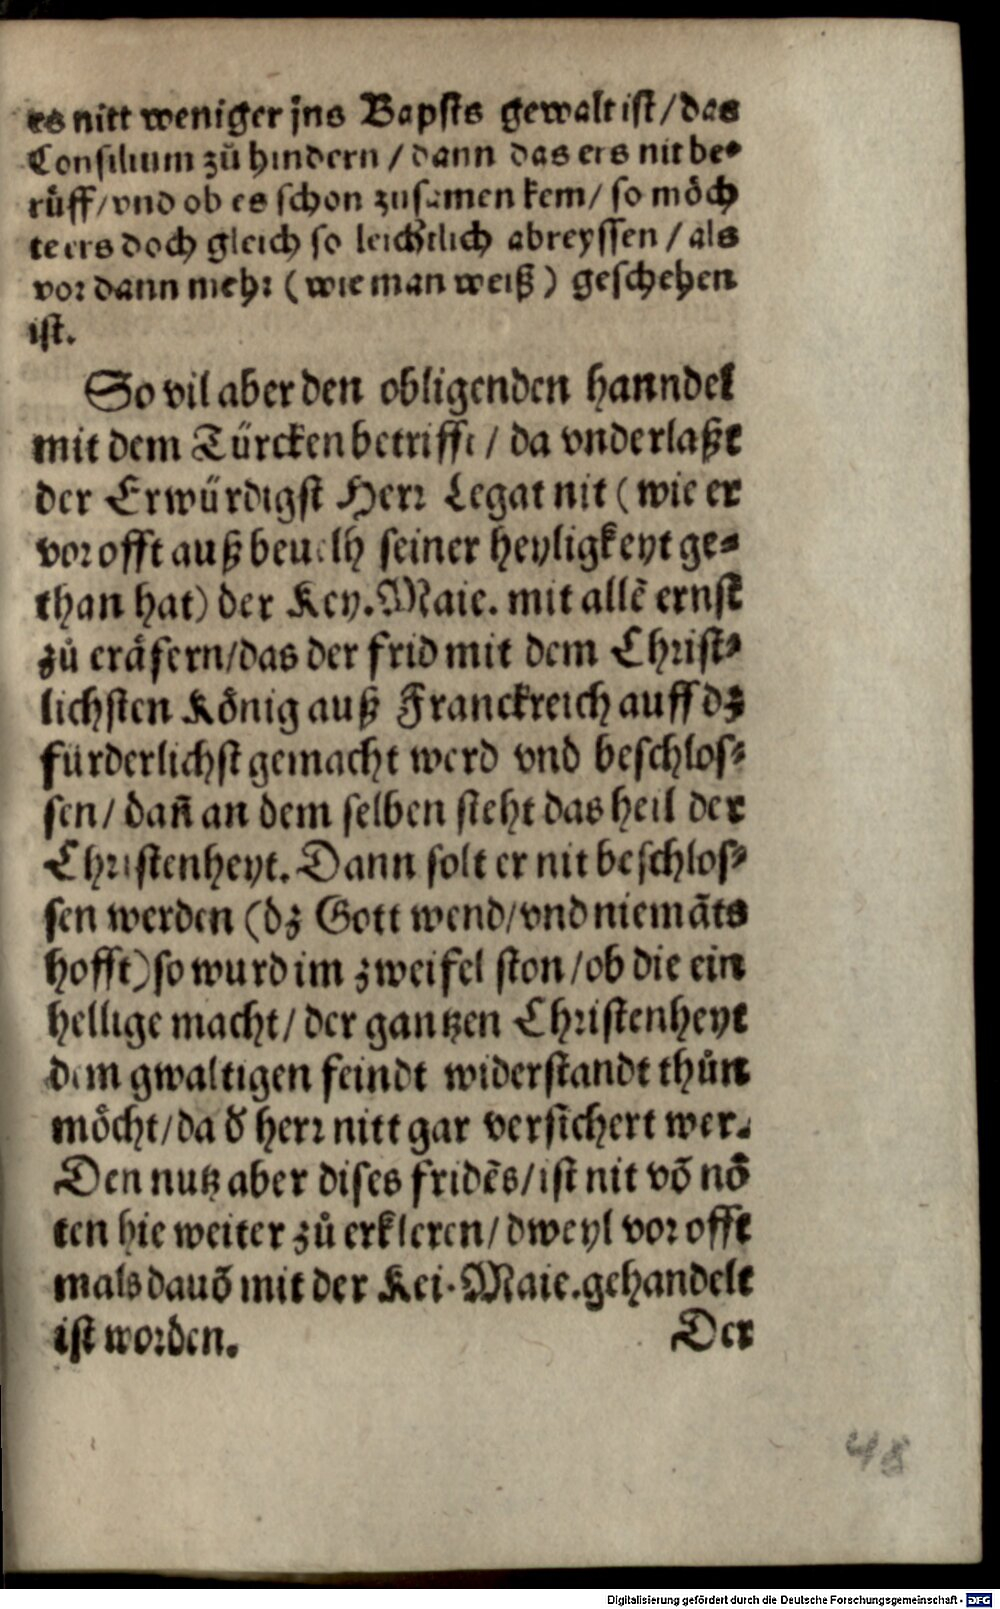 es nitt weniger jns Bapsts gewalt ist / das
Consilium zů hindern / dann das ers nit be⸗
růff / vnd ob es schon zusamen kem / so mõch
te ers doch gleich so leichtlich abreyssen / als
vor dann mehr ( wie man weiß ) geschehen
ist.
So vil aber den obligenden hanndel
mit dem Türcken betrifft / da vnderlaßt
der Erwürdigst Herr Legat nit ( wie er
vor offt auß beuelh seiner heyligkeyt ge⸗
than hat) der Key. Maie. mit allẽ ernst
zů eräfern / das der frid mit dem Christ⸗
lichsten Kőnig auß Franckreich auff dz
fürderlichst gemacht werd vnd beschlos⸗
sen / dañ an dem selben steht das heil der
Christenheyt. Dann solt er nit beschlos⸗
sen werden (dz Gott wend / vnd niemãts
hofft) so wurd im zweifel ston / ob die ein
hellige macht / der gantzen Christenheyt
dem gwaltigen feindt widerstandt thůn
mőcht / da d̃ herr nitt gar versichert wer.
Den nutz aber dises fridẽs / ist nit võ nő
ten hie weiter zů erkleren / dweyl vor offt
mals dauõ mit der Kei. Maie. gehandelt
ist worden. Der
48
Digitalisierung gefördert durch die Deutsche Forschungsgemeinschaft - DFG